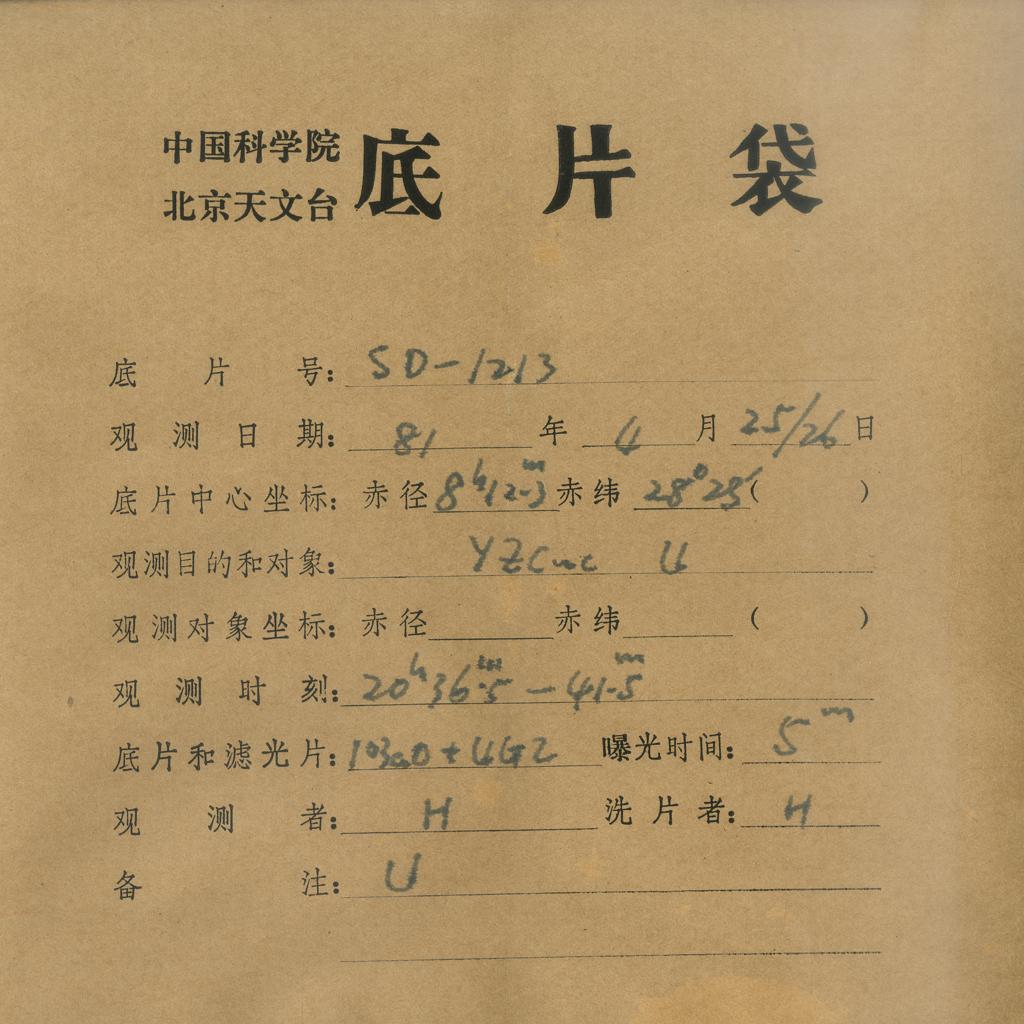 中国科学院
北京天文台 底片袋
底片号: SD-1213
观测日期: 81 年 4 月 25/26 日
底片中心坐标: 赤径 8h12.3m 赤纬 28°25′ ( )
观测目的和对象: YZ Cnc U
观测对象坐标: 赤径 赤纬 ( )
观测时刻: 20h36m.5 - 41m.5
底片和滤光片: 103aO + UG2 曝光时间: 5m
观测者: H 洗片者: H
备注: U